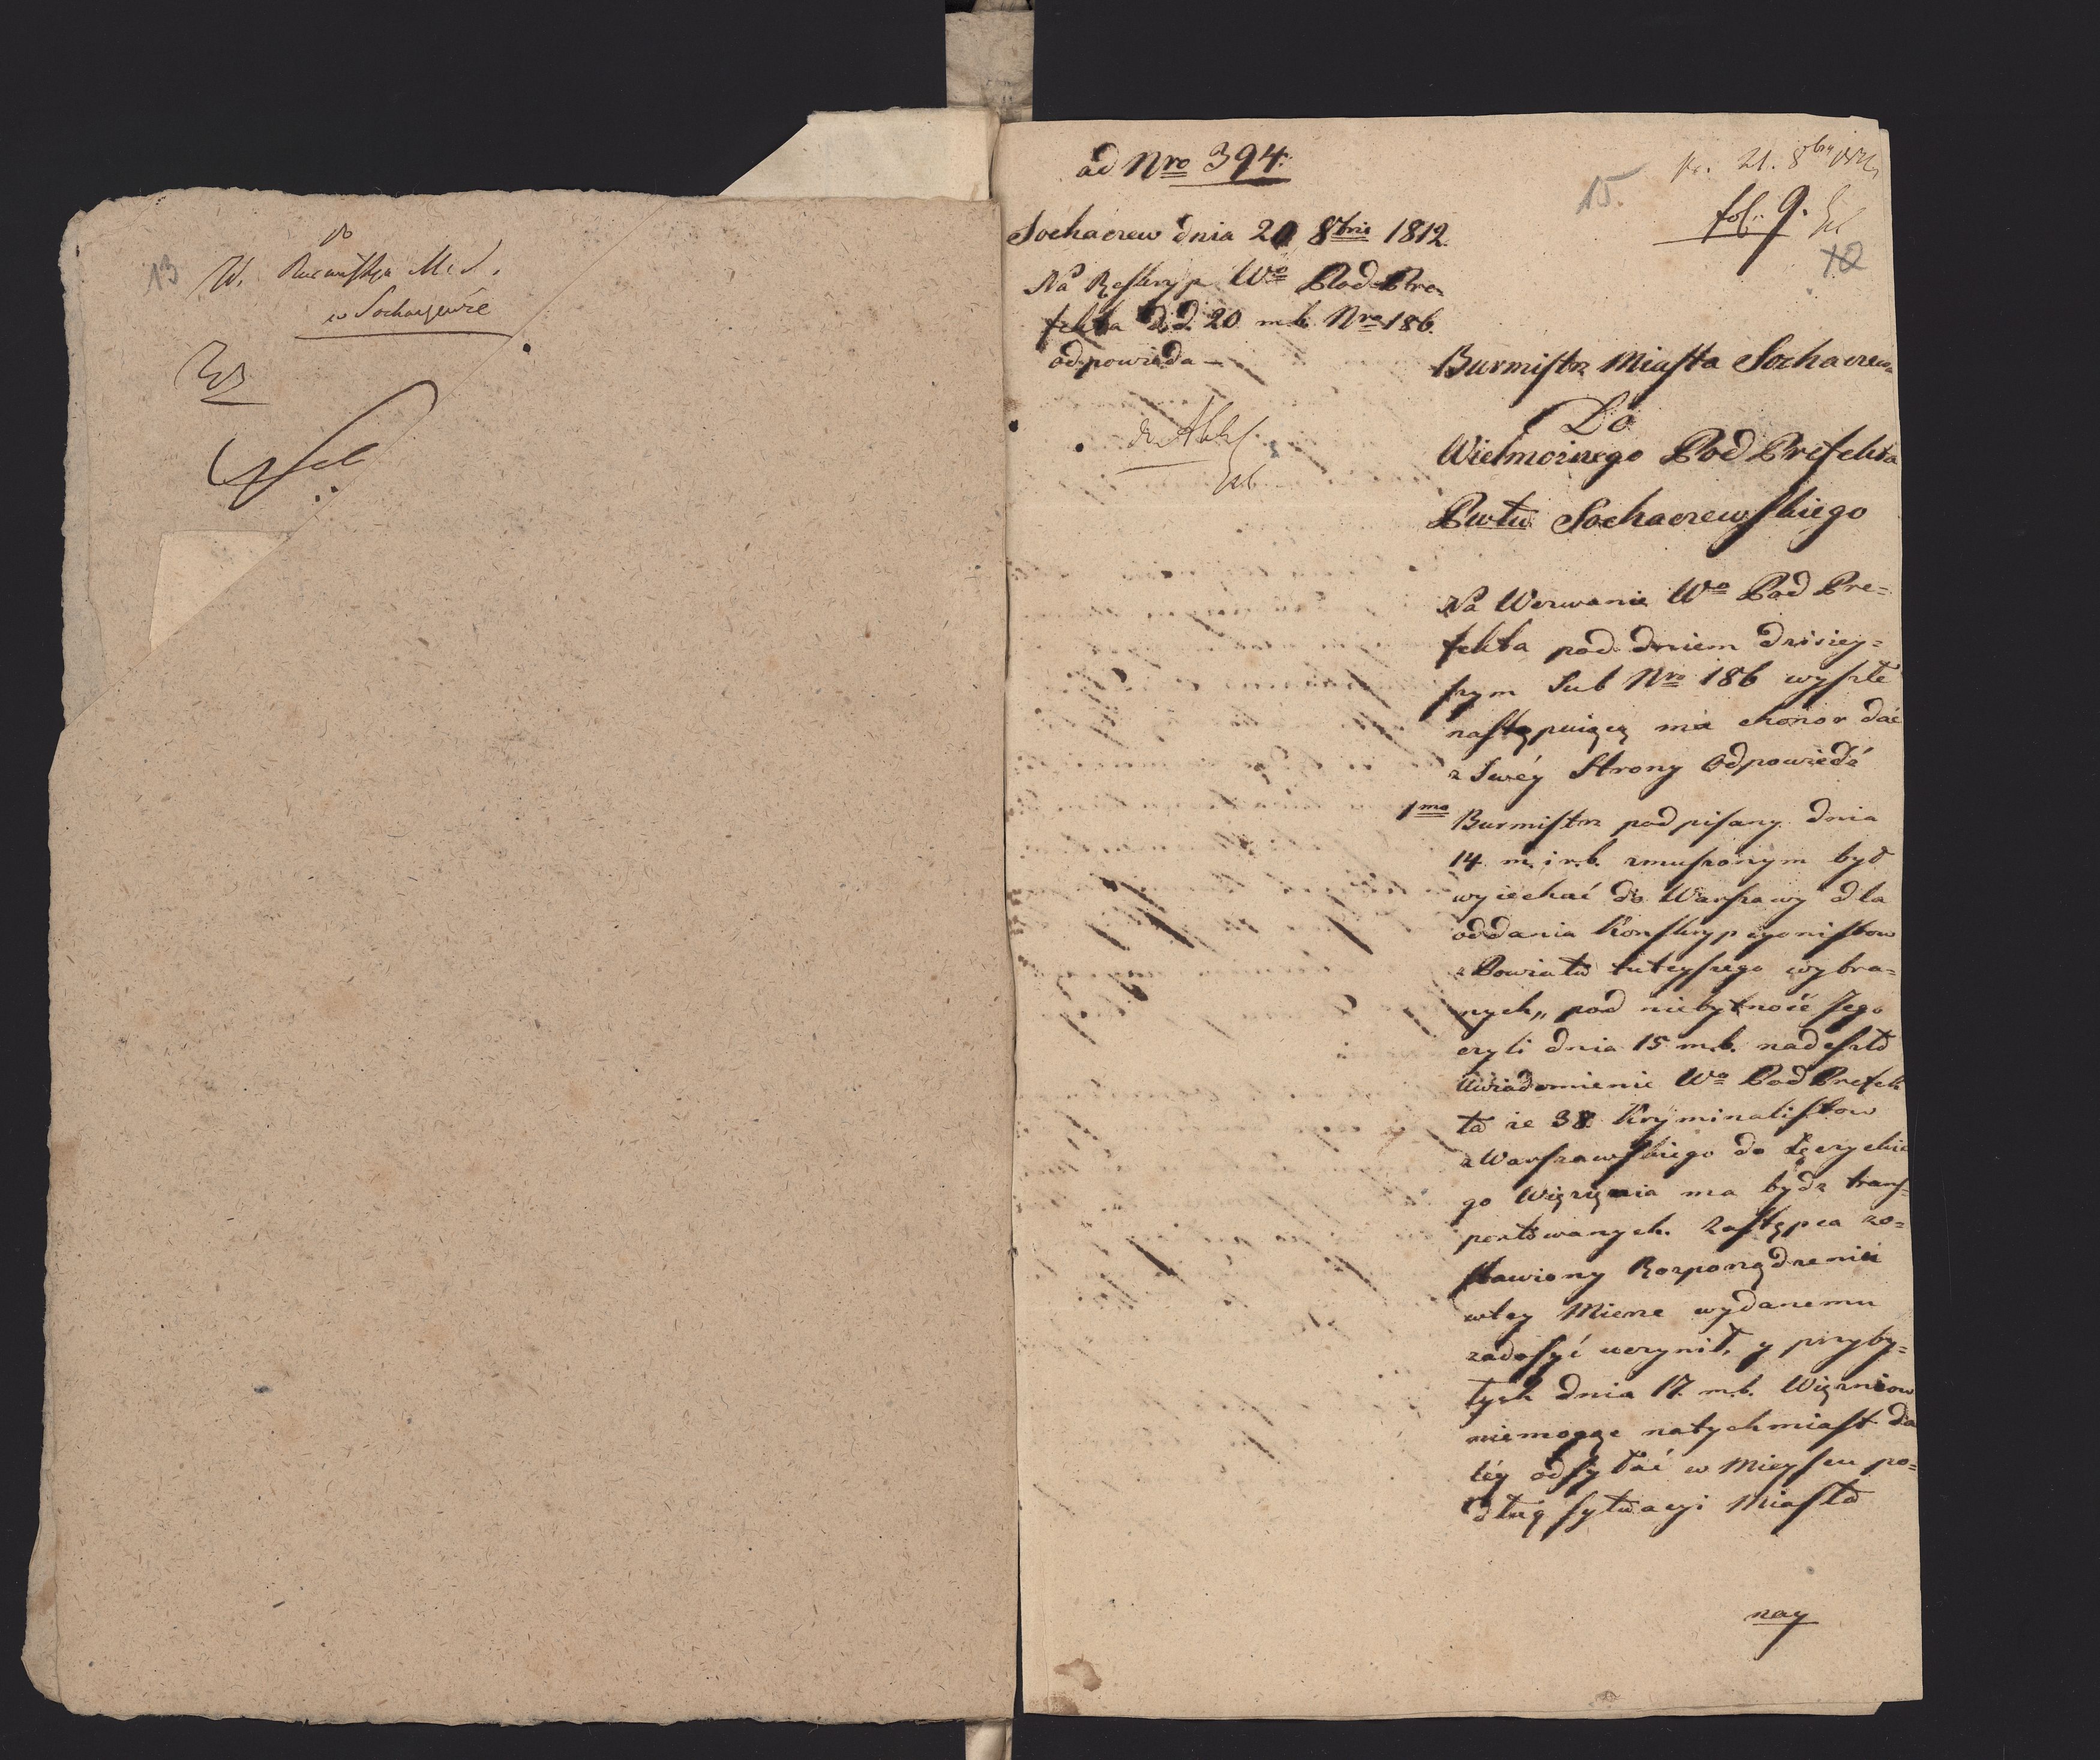 13
do
W.
w Sochaczewie
ad Nro 394.
15.
pr. 21. 8bris 1812
fol. 9.
10
Sochaczew dnia 20 8bris 1812.
Na Reskryp Wo Pod-Pre-
fekta d.d. 20 m.b. Nro 186.
odpowiada—
ad Acta
Burmistrz Miasta Sochaczew-
Do
Wielmożnego Pod Prefekta
Pwtu Sochaczewskiego
Na Wezwanie Wo Pod Pre=
fekta pod dniem dzisiey=
szym Sub Nro 186 wyszłe
następuiącą ma chonor dać
z Swéy Strony Odpowiedź
1mo Burmistrz podpisany dnia
14 m. i r.b. zmuszonym był
wyiechać do Warszawy dla
oddania Konskrypcyonistow
z Powiatu tuteyszego wybra=
nych,, pod niebytność Jego
czyli dnia 15 m.b. nadeszło
Uwiadomienie Wo Pod Prefek
ta że 38 Kryminalistow
z Warszawskiego do Łęczyckie
go Więzięnia ma bydz trans=
portowanych. Zastępca zo=
stawiony Rozporządzeniu
wtey Mierze wydanemu
zadosyć uczynił, y przyby=
łych dnia 17. m.b. Więzniow
niemogąc natychmiast da
léy odsyłać w Mieyscu po=
dług sytuacyi Miasta
nay